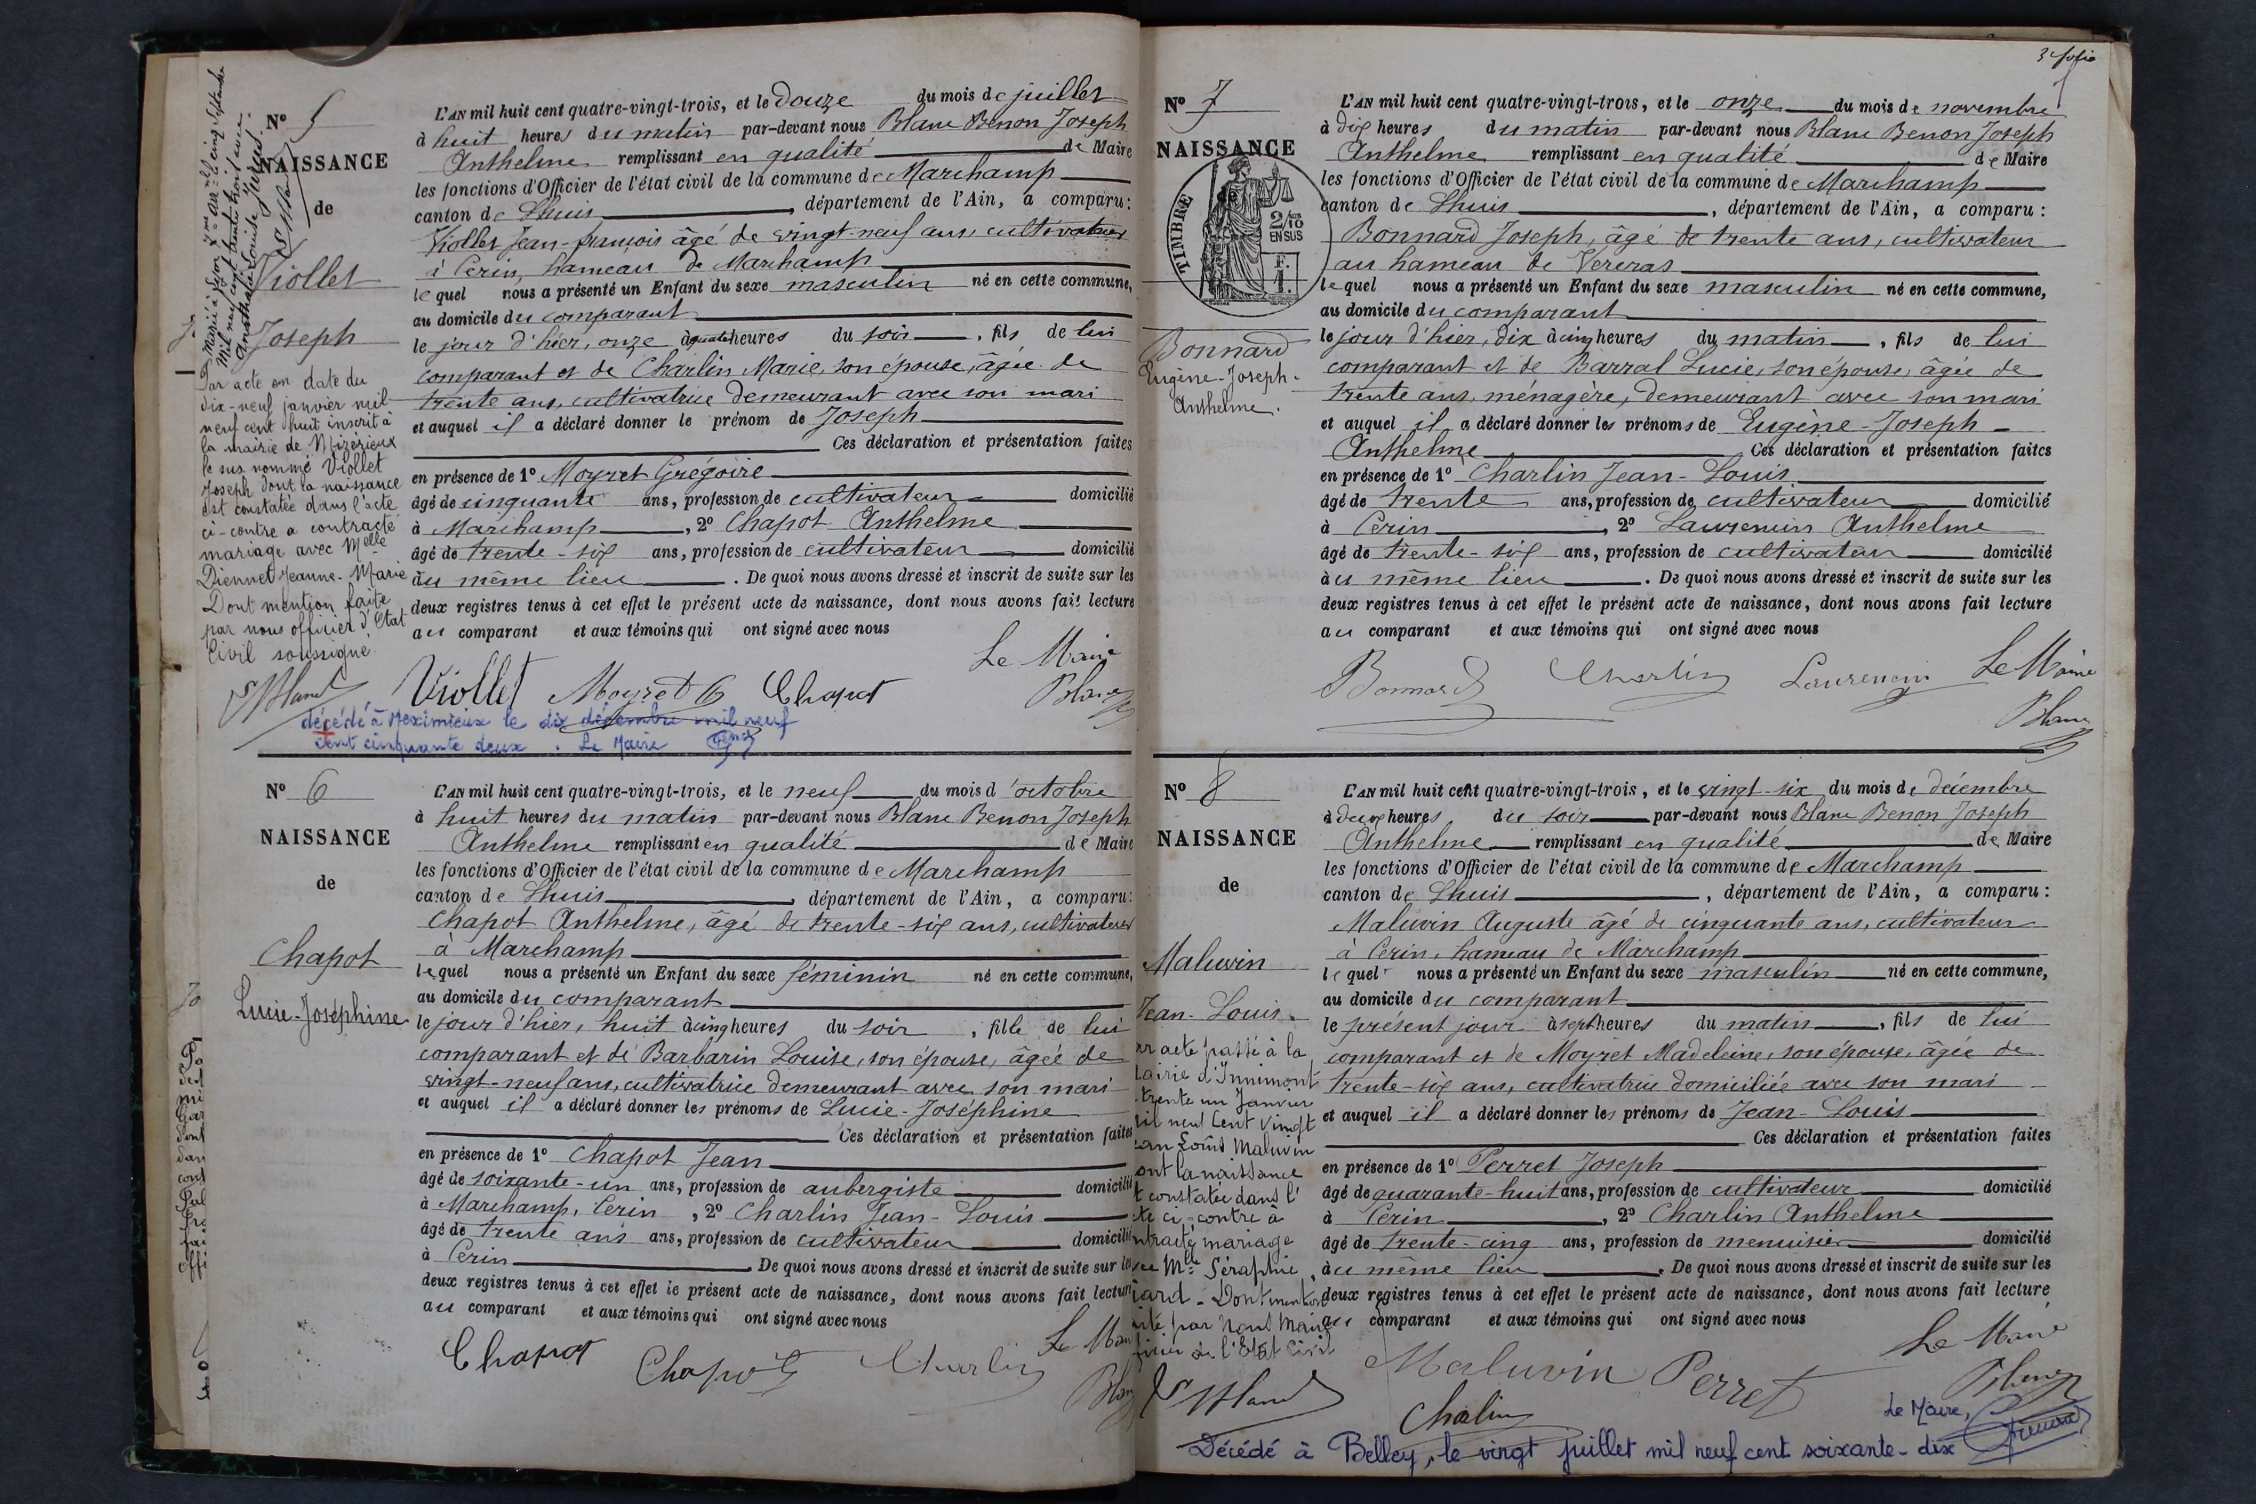 Nº 5
NAISSANCE
de
Viollet
Joseph
Par acte en date du
dix-neuf janvier mil
neuf cent huit inscrit à
la mairie de Mizérieux
le sus nommé Viollet
Joseph dont la naissance
est constatée dans l'acte
ci-contre a contracté
mariage avec Melle
Diennet Jeanne-Marie
Dont mention faite
par nous officier d'Etat
Civil soussigné.
L'AN mil huit cent quatre-vingt-trois, et le douze du mois de juillet
à huit heures du matin par-devant nous Blanc Benon Joseph
Anthelme remplissant en qualité de Maire
les fonctions d'Officier de l'état civil de la commune de Marchamp
canton de Lhuis, département de l'Ain, a comparu:
Viollet Jean-françois âgé de vingt-neuf ans, cultivateur
à Cerin, hameau de Marchamp
lequel nous a présenté un Enfant du sexe masculin né en cette commune,
au domicile du comparant
le jour d'hier, onze à quatre heures du soir, fils de lui
comparant et de Charlin Marie, son épouse, âgée de
trente ans, cultivatrice demeurant avec son mari
et auquel il a déclaré donner le prénom de Joseph
Ces déclaration et présentation faites
en présence de 1º Moyret Grégoire
âgé de cinquante ans, profession de cultivateur domicilié
à Marchamp, 2º Chapot Anthelme
âgé de trente-six ans, profession de cultivateur domicilié
au même lieu. De quoi nous avons dressé et inscrit de suite sur les
deux registres tenus à cet effet le présent acte de naissance, dont nous avons fait lecture
au comparant et aux témoins qui ont signé avec nous
Le Maire
Viollet Moyret G Chapot Blanc
décédé à Meximieux le dix décembre mil neuf
cent cinquante deux. Le Maire
Nº 6
NAISSANCE
de
Chapot
Lucie-Joséphine
L'AN mil huit cent quatre-vingt-trois, et le neuf du mois d'octobre
à huit heures du matin par-devant nous Blanc Benon Joseph
Anthelme remplissant en qualité de Maire
les fonctions d'Officier de l'état civil de la commune de Marchamp
canton de Lhuis, département de l'Ain, a comparu:
Chapot Anthelme, âgé de trente-six ans, cultivateur
à Marchamp
lequel nous a présenté un Enfant du sexe féminin né en cette commune,
au domicile du comparant
le jour d'hier, huit à cinq heures du soir, fille de lui
comparant et de Barbarin Louise, son épouse, âgée de
vingt-neuf ans, cultivatrice demeurant avec son mari
et auquel il a déclaré donner les prénoms de Lucie-Joséphine
Ces déclaration et présentation faites
en présence de 1º Chapot Jean
âgé de soixante-un ans, profession de aubergiste domicilié
à Marchamp, Cerin, 2º Charlin Jean-Louis
âgé de trente ans ans, profession de cultivateur domicilié
à Cerin. De quoi nous avons dressé et inscrit de suite sur les
deux registres tenus à cet effet le présent acte de naissance, dont nous avons fait lecture
au comparant et aux témoins qui ont signé avec nous
Le Maire
Chapot Chapot Charlin Blanc
3e folio
Nº 7
NAISSANCE
de
TIMBRE
2/10 EN SUS
F. 1.
Bonnard
Eugène-Joseph-
Anthelme.
L'AN mil huit cent quatre-vingt-trois, et le onze du mois de novembre
à dix heures du matin par-devant nous Blanc Benon Joseph
Anthelme remplissant en qualité de Maire
les fonctions d'Officier de l'état civil de la commune de Marchamp
canton de Lhuis, département de l'Ain, a comparu:
Bonnard Joseph, âgé de trente ans, cultivateur
au hameau de Vereras
lequel nous a présenté un Enfant du sexe masculin né en cette commune,
au domicile du comparant
le jour d'hier, dix à cinq heures du matin, fils de lui
comparant et de Barral Lucie, son épouse, âgée de
trente ans, ménagère, demeurant avec son mari
et auquel il a déclaré donner les prénoms de Eugène-Joseph-
Anthelme Ces déclaration et présentation faites
en présence de 1º Charlin Jean-Louis
âgé de trente ans, profession de cultivateur domicilié
à Cerin, 2º Laurencin Anthelme
âgé de trente-six ans, profession de cultivateur domicilié
au même lieu. De quoi nous avons dressé et inscrit de suite sur les
deux registres tenus à cet effet le présent acte de naissance, dont nous avons fait lecture
au comparant et aux témoins qui ont signé avec nous
Bonnard Charlin Laurencin Le Maire
Blanc
Nº 8
NAISSANCE
de
Maluvin
Jean-Louis.
acte passé à la
airie d'Innimont
trente un Janvier
il neuf Cent vingt
an Louis Maluvin
ont la naissance
t constatée dans l'
te ci-contre à
ntracté mariage
Mlle Séraphie
ard. Dont mention
ite par Nous Maire
ficier de l'Etat Civil
L'AN mil huit cent quatre-vingt-trois, et le vingt-six du mois de décembre
à deux heures du soir par-devant nous Blanc Benon Joseph
Anthelme remplissant en qualité de Maire
les fonctions d'Officier de l'état civil de la commune de Marchamp
canton de Lhuis, département de l'Ain, a comparu:
Maluvin Auguste âgé de cinquante ans, cultivateur
à Cerin, hameau de Marchamp
lequel nous a présenté un Enfant du sexe masculin né en cette commune,
au domicile du comparant
le présent jour à sept heures du matin, fils de lui
comparant et de Moyret Madeleine, son épouse, âgée de
trente-six ans, cultivatrice domiciliée avec son mari
et auquel il a déclaré donner les prénoms de Jean-Louis
Ces déclaration et présentation faites
en présence de 1º Perret Joseph
âgé de quarante-huit ans, profession de cultivateur domicilié
à Cerin, 2º Charlin Anthelme
âgé de trente-cinq ans, profession de menuisier domicilié
au même lieu. De quoi nous avons dressé et inscrit de suite sur les
deux registres tenus à cet effet le présent acte de naissance, dont nous avons fait lecture
au comparant et aux témoins qui ont signé avec nous
Le Maire
Maluvin Perret Blanc
Charlin
Le Maire,
Décédé à Belley, le vingt juillet mil neuf cent soixante-dix